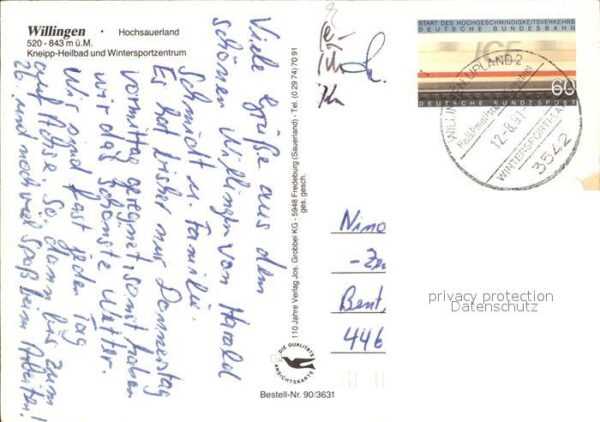 Willingen • Hochsauerland
520 - 843 m ü.M.
Kneipp-Heilbad und Wintersportzentrum
Viele Grüße aus dem
schönen Willingen von Harald
Schmidt u. Familie.
Es hat bisher nur Donnerstag
vormittag geregnet, sonst haben
wir das schönste Wetter.
Wir sind fast jeden Tag
auf Achse. So, dann bis zum
26. und noch viel Spaß beim Arbeiten!
110 Jahre Verlag Jos. Grobbel KG - 5948 Fredeburg (Sauerland) - Tel. (0 29 74) 70 91
ges. gesch.
DIE QUALITÄTS
ANSICHTSKARTE
Bestell-Nr. 90/3631
START DES HOCHGESCHWINDIGKEITSVERKEHRS
DEUTSCHE BUNDESBAHN
ICE
60
DEUTSCHE BUNDESPOST
WILLINGEN UPLAND 2
12.-8.91-
WINTERSPORTPLATZ
3542
Nino
-Ze
Bent,
446
privacy protection
Datenschutz